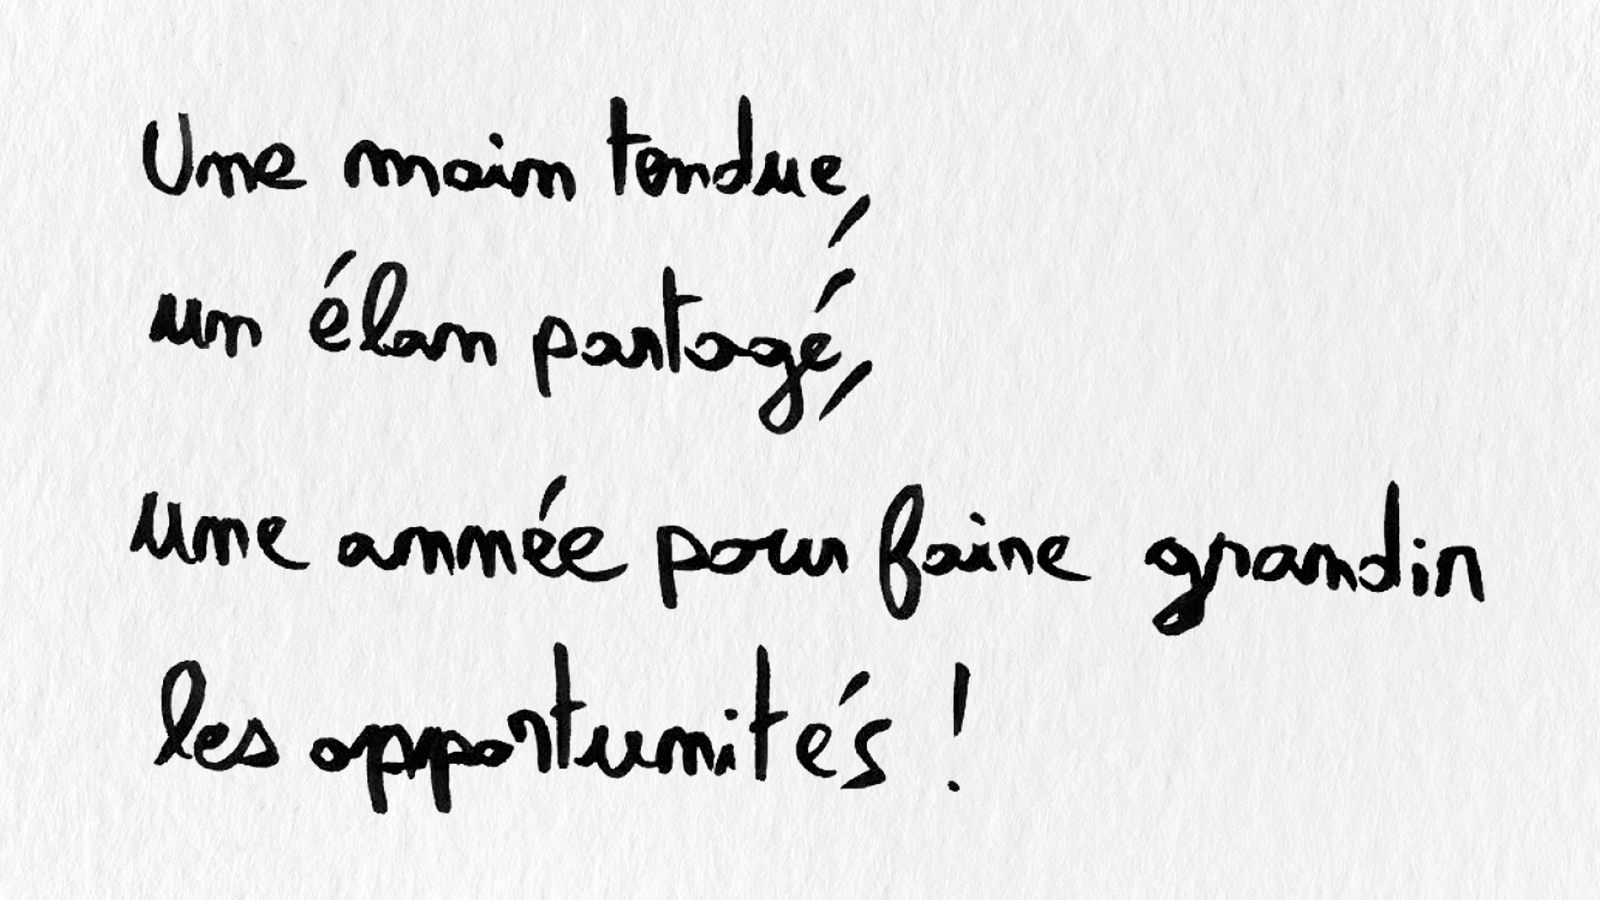 Une main tendue,
un élan partagé,
une année pour faire grandir
les opportunités !